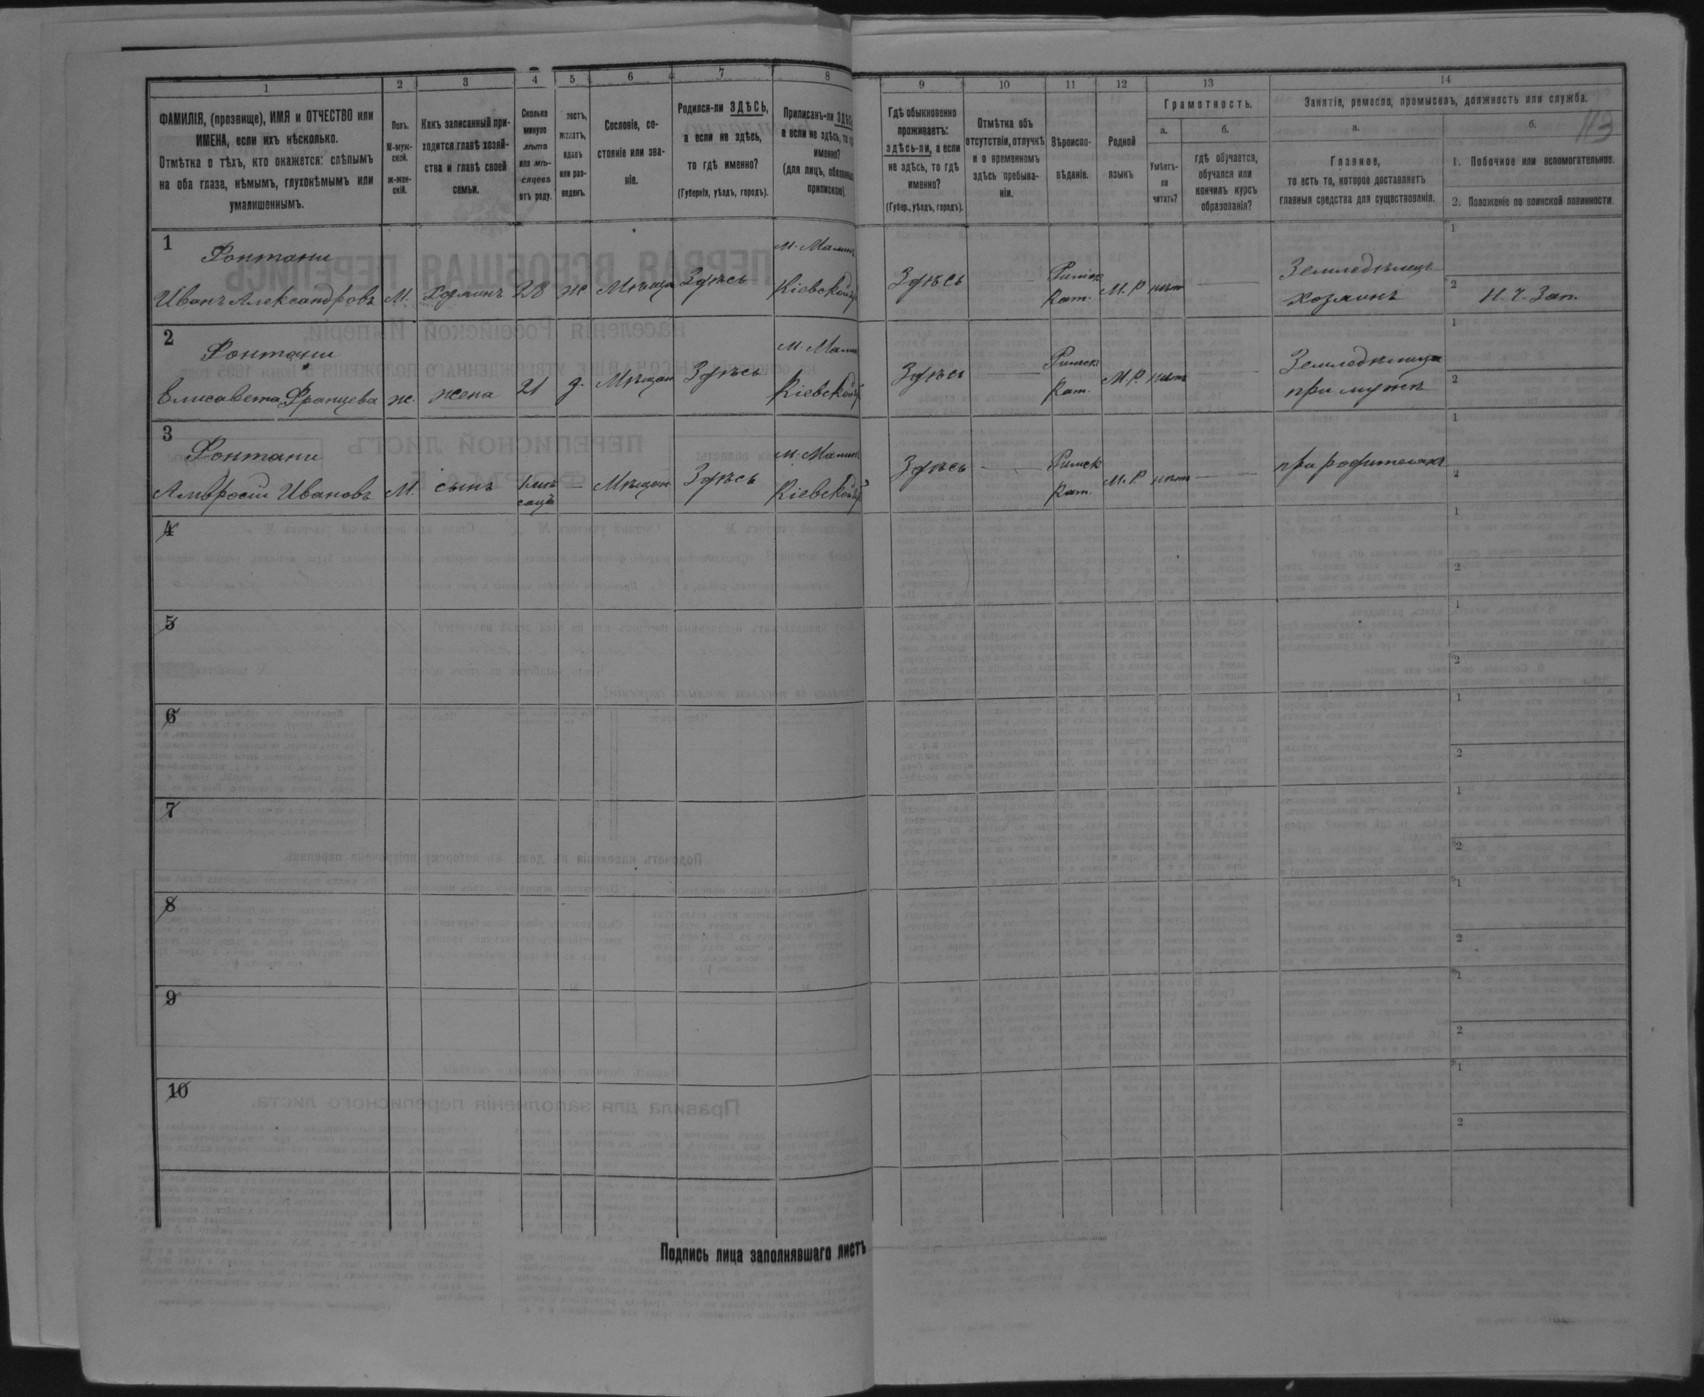 1
2
3
4
5
6
7
8
9
10
11
12
13
14
ФАМИЛІЯ, (прозвище), ИМЯ и ОТЧЕСТВО или
ИМЕНА, если ихъ нѣсколько.
Отмѣтка о тѣхъ, кто окажется: слѣпымъ
на оба глаза, нѣмымъ, глухонѣмымъ или
умалишеннымъ.
Полъ.
М-муж-
ской.
ж-жен-
скій.
Какъ записанный при-
ходится главѣ хозяй-
ства и главѣ своей
семьи.
Сколько
минуло
лѣтъ
или мѣ-
сяцевъ
отъ роду.
лостъ,
женатъ,
вдовъ
или раз-
веденъ.
Сословіе, со-
стояніе или зва-
ніе.
Родился-ли ЗДѢСЬ,
а если не здѣсь,
то гдѣ именно?
(Губернія, уѣздъ, городъ).
Приписанъ-ли ЗДѢСЬ
а если не здѣсь, то гд
именно?
(для лицъ, обязанных
припискою).
Гдѣ обыкновенно
проживаетъ:
здѣсь-ли, а если
не здѣсь, то гдѣ
именно?
(Губер., уѣздъ, городъ).
Отмѣтка объ
отсутствіи, отлучкѣ
и о временномъ
здѣсь пребыва-
ніи.
Вѣроиспо-
вѣданіе.
Родной
языкъ
Грамотность.
а.
Умѣетъ-
ли
читать?
б.
гдѣ обучается,
обучался или
кончилъ курсъ
образованія?
Занятіе, ремесло, промыселъ, должность или служба.
113
а.
Главное,
то есть то, которое доставляетъ
главныя средства для существованія.
б.
1. Побочное или вспомогательное.
2. Положеніе по воинской повинности.
1
Фонтани
Иванъ Александровъ
М.
Хозяинъ
28
ж
Мѣща
Здѣсь
м. Малин
Кіевской г
Здѣсь
Римск
Кат.
М.Р
нѣт
Земледѣлец
хозяинъ
1
2
Н. Ч. Зап.
2
Фонтани
Елисавета Францева
ж
жена
21
з.
Мѣщан
Здѣсь
м. Малин
Кіевской г
Здѣсь
Римск
Кат.
М.Р.
нѣт
Земледѣлица
при мужѣ
1
2
3
Фонтани
Амвросій Ивановъ
М.
сынъ
1 мѣ
сацъ
Мѣщан
Здѣсь
м. Малин
Кіевской г
Здѣсь
Римск
Кат.
М.Р
нѣт
при родителях
1
2
4
1
2
5
1
2
6
1
2
7
1
2
8
1
2
9
1
2
10
1
2
Подпись лица заполнявшаго листъ